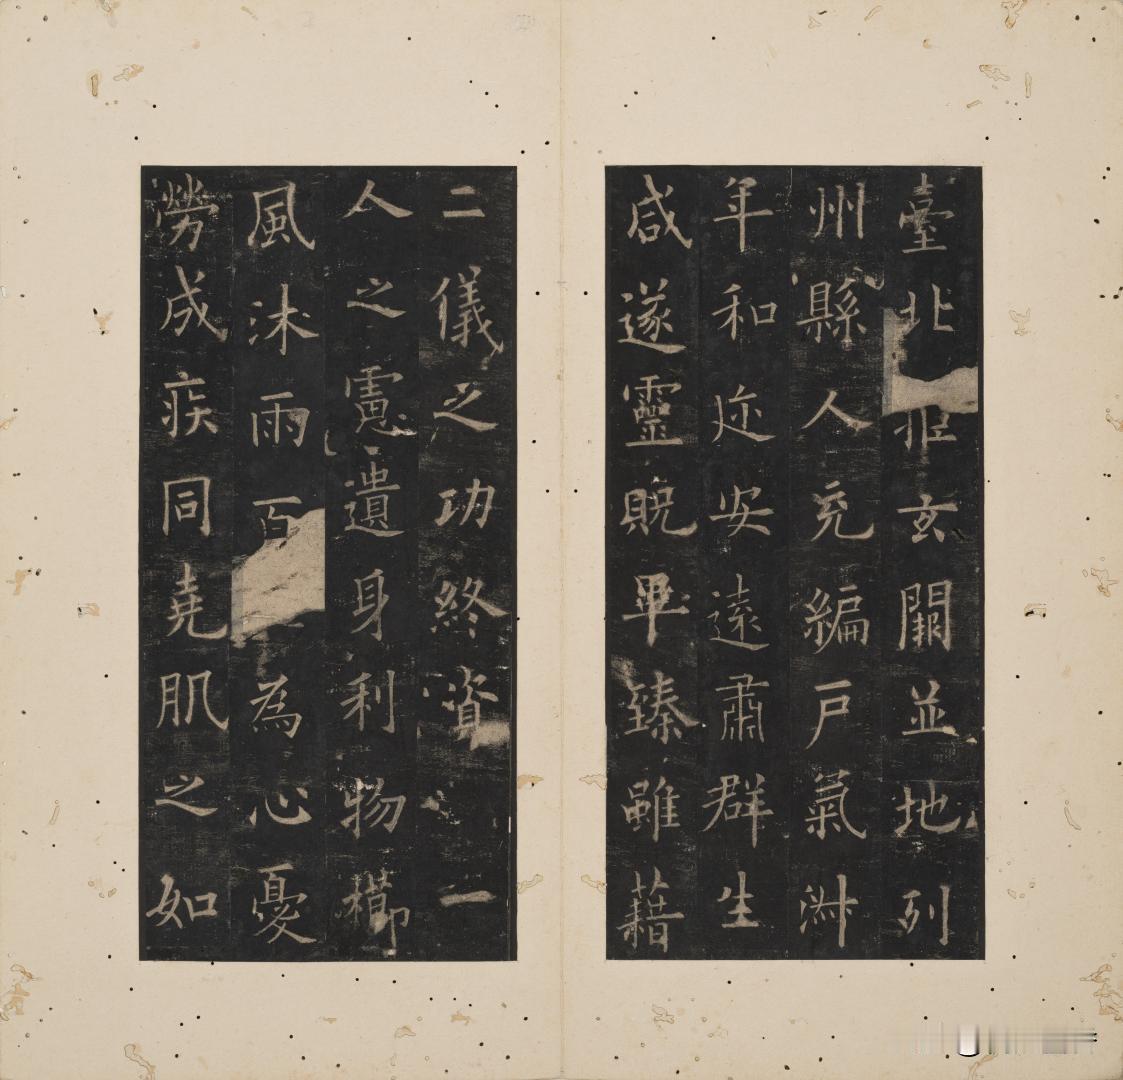 臺北拒玄闕並地列
州縣人充編戶氣淑
年和迩安遠肅群生
咸遂靈貺畢臻雖藉
二儀之功終資一
人之慮遺身利物櫛
風沐雨百為心憂
勞成疾同堯肌之如